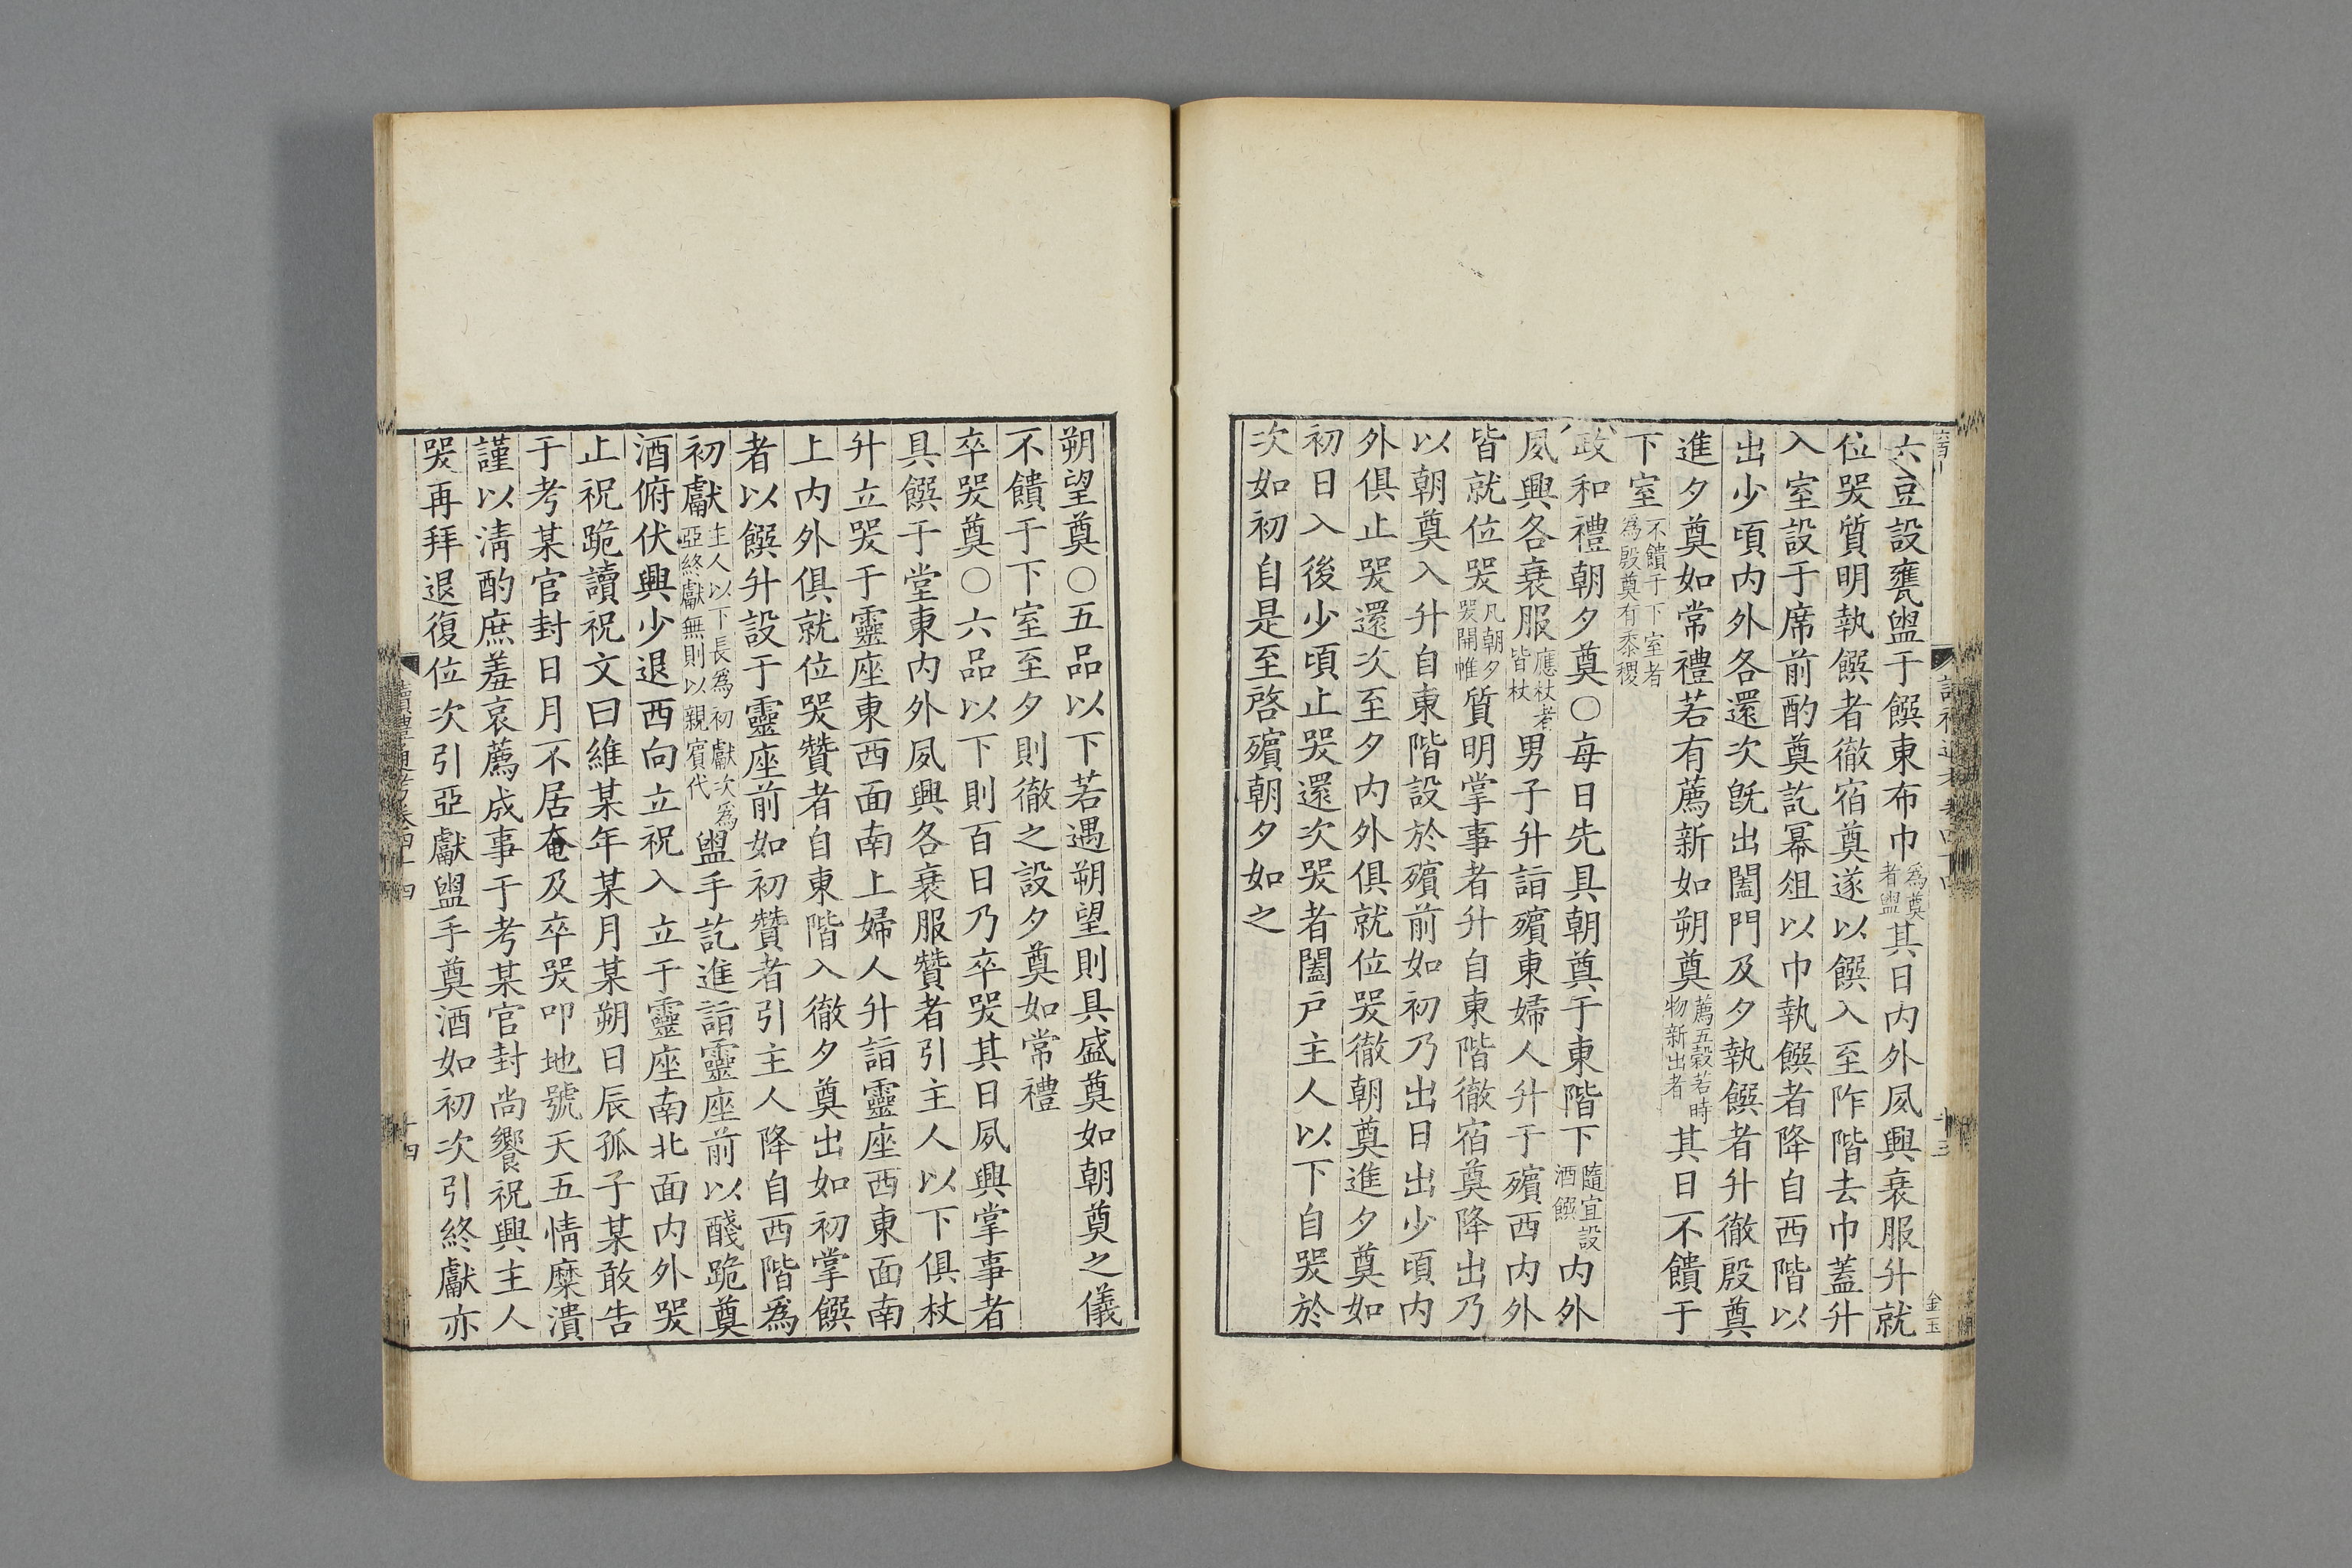 六豆設甕盥于饌東布巾爲奠者盥其日内外夙興衰服升就
位哭質明執饌者徹宿奠遂以饌入至阼階去巾蓋升
入室設于席前酌奠訖冪俎以巾執饌者降自西階以
出少頃内外各還次旣出闔門及夕執饌者升徹殷奠
進夕奠如常禮若有薦新如朔奠薦五穀若時物新出者其日不饋于
下室不饋于下室者爲殷奠有黍稷
政和禮朝夕奠○每日先具朝奠于東階下隨宜設酒饌内外
夙興各衰服應杖者皆杖男子升詣殯東婦人升于殯西内外
皆就位哭凡朝夕哭開帷質明掌事者升自東階徹宿奠降出乃
以朝奠入升自東階設於殯前如初乃出日出少頃内
外俱止哭還次至夕内外俱就位哭徹朝奠進夕奠如
初日入後少頃止哭還次哭者闔戶主人以下自哭於
次如初自是至啓殯朝夕如之
朔望奠○五品以下若遇朔望則具盛奠如朝奠之儀
不饋于下室至夕則徹之設夕奠如常禮
卒哭奠○六品以下則百日乃卒哭其日夙興掌事者
具饌于堂東内外夙興各衰服贊者引主人以下俱杖
升立哭于靈座東西面南上婦人升詣靈座西東面南
上内外俱就位哭贊者自東階入徹夕奠出如初掌饌
者以饌升設于靈座前如初贊者引主人降自西階爲
初獻主人以下長爲初獻次爲亞終獻無則以親賓代盥手訖進詣靈座前以醆跪奠
酒俯伏興少退西向立祝入立于靈座南北面内外哭
止祝跪讀祝文曰維某年某月某朔日辰孤子某敢告
于考某官封日月不居奄及卒哭叩地號天五情糜潰
謹以淸酌庶羞哀薦成事于考某官封尚饗祝興主人
哭再拜退復位次引亞獻盥手奠酒如初次引終獻亦
讀禮通考卷四十四
十四